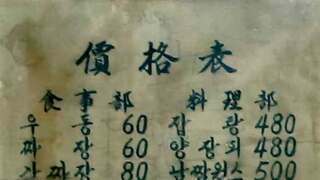 價格表
食事部 料理部
우동 60 잡탕 480
짜장 60 양장피 480
간짜장 80 난짜완스 500